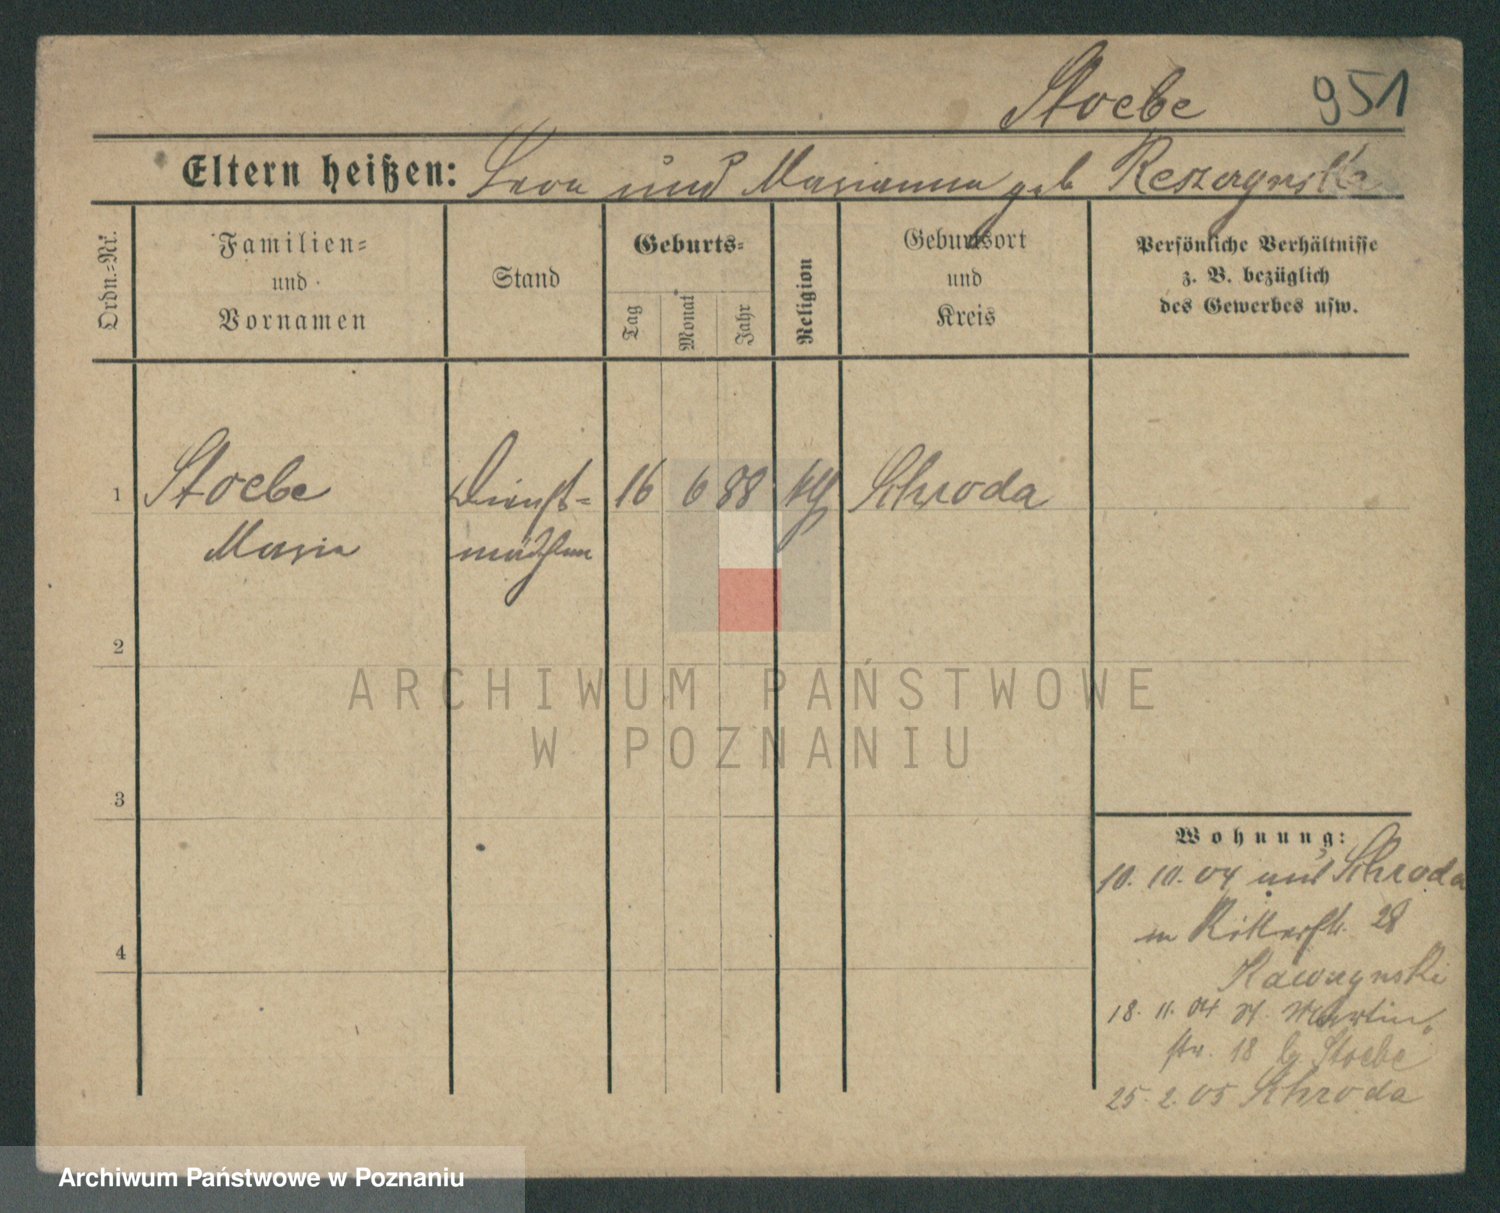 Stoebe 951
Eltern heißen: Leon und Marianna geb Reszczynska
Ordn.-Nr.
Familien-
und
Vornamen
Stand
Geburts-
Tag
Monat
Jahr
Religion
Geburtsort
und
Kreis
Persönliche Verhältnisse
z. B. bezüglich
des Gewerbes usw.
1 Stoebe Dienst- 16 6 88 Schroda
Maria mädchen
2
3
4
ARCHIWUM PAŃSTWOWE
W POZNANIU
Wohnung:
10. 10. 04 aus Schroda
in Ritterstr. 28
18. 11. 04 St. Martin
str. 18 Stoebe
25. 2. 05 Schroda
Archiwum Państwowe w Poznaniu